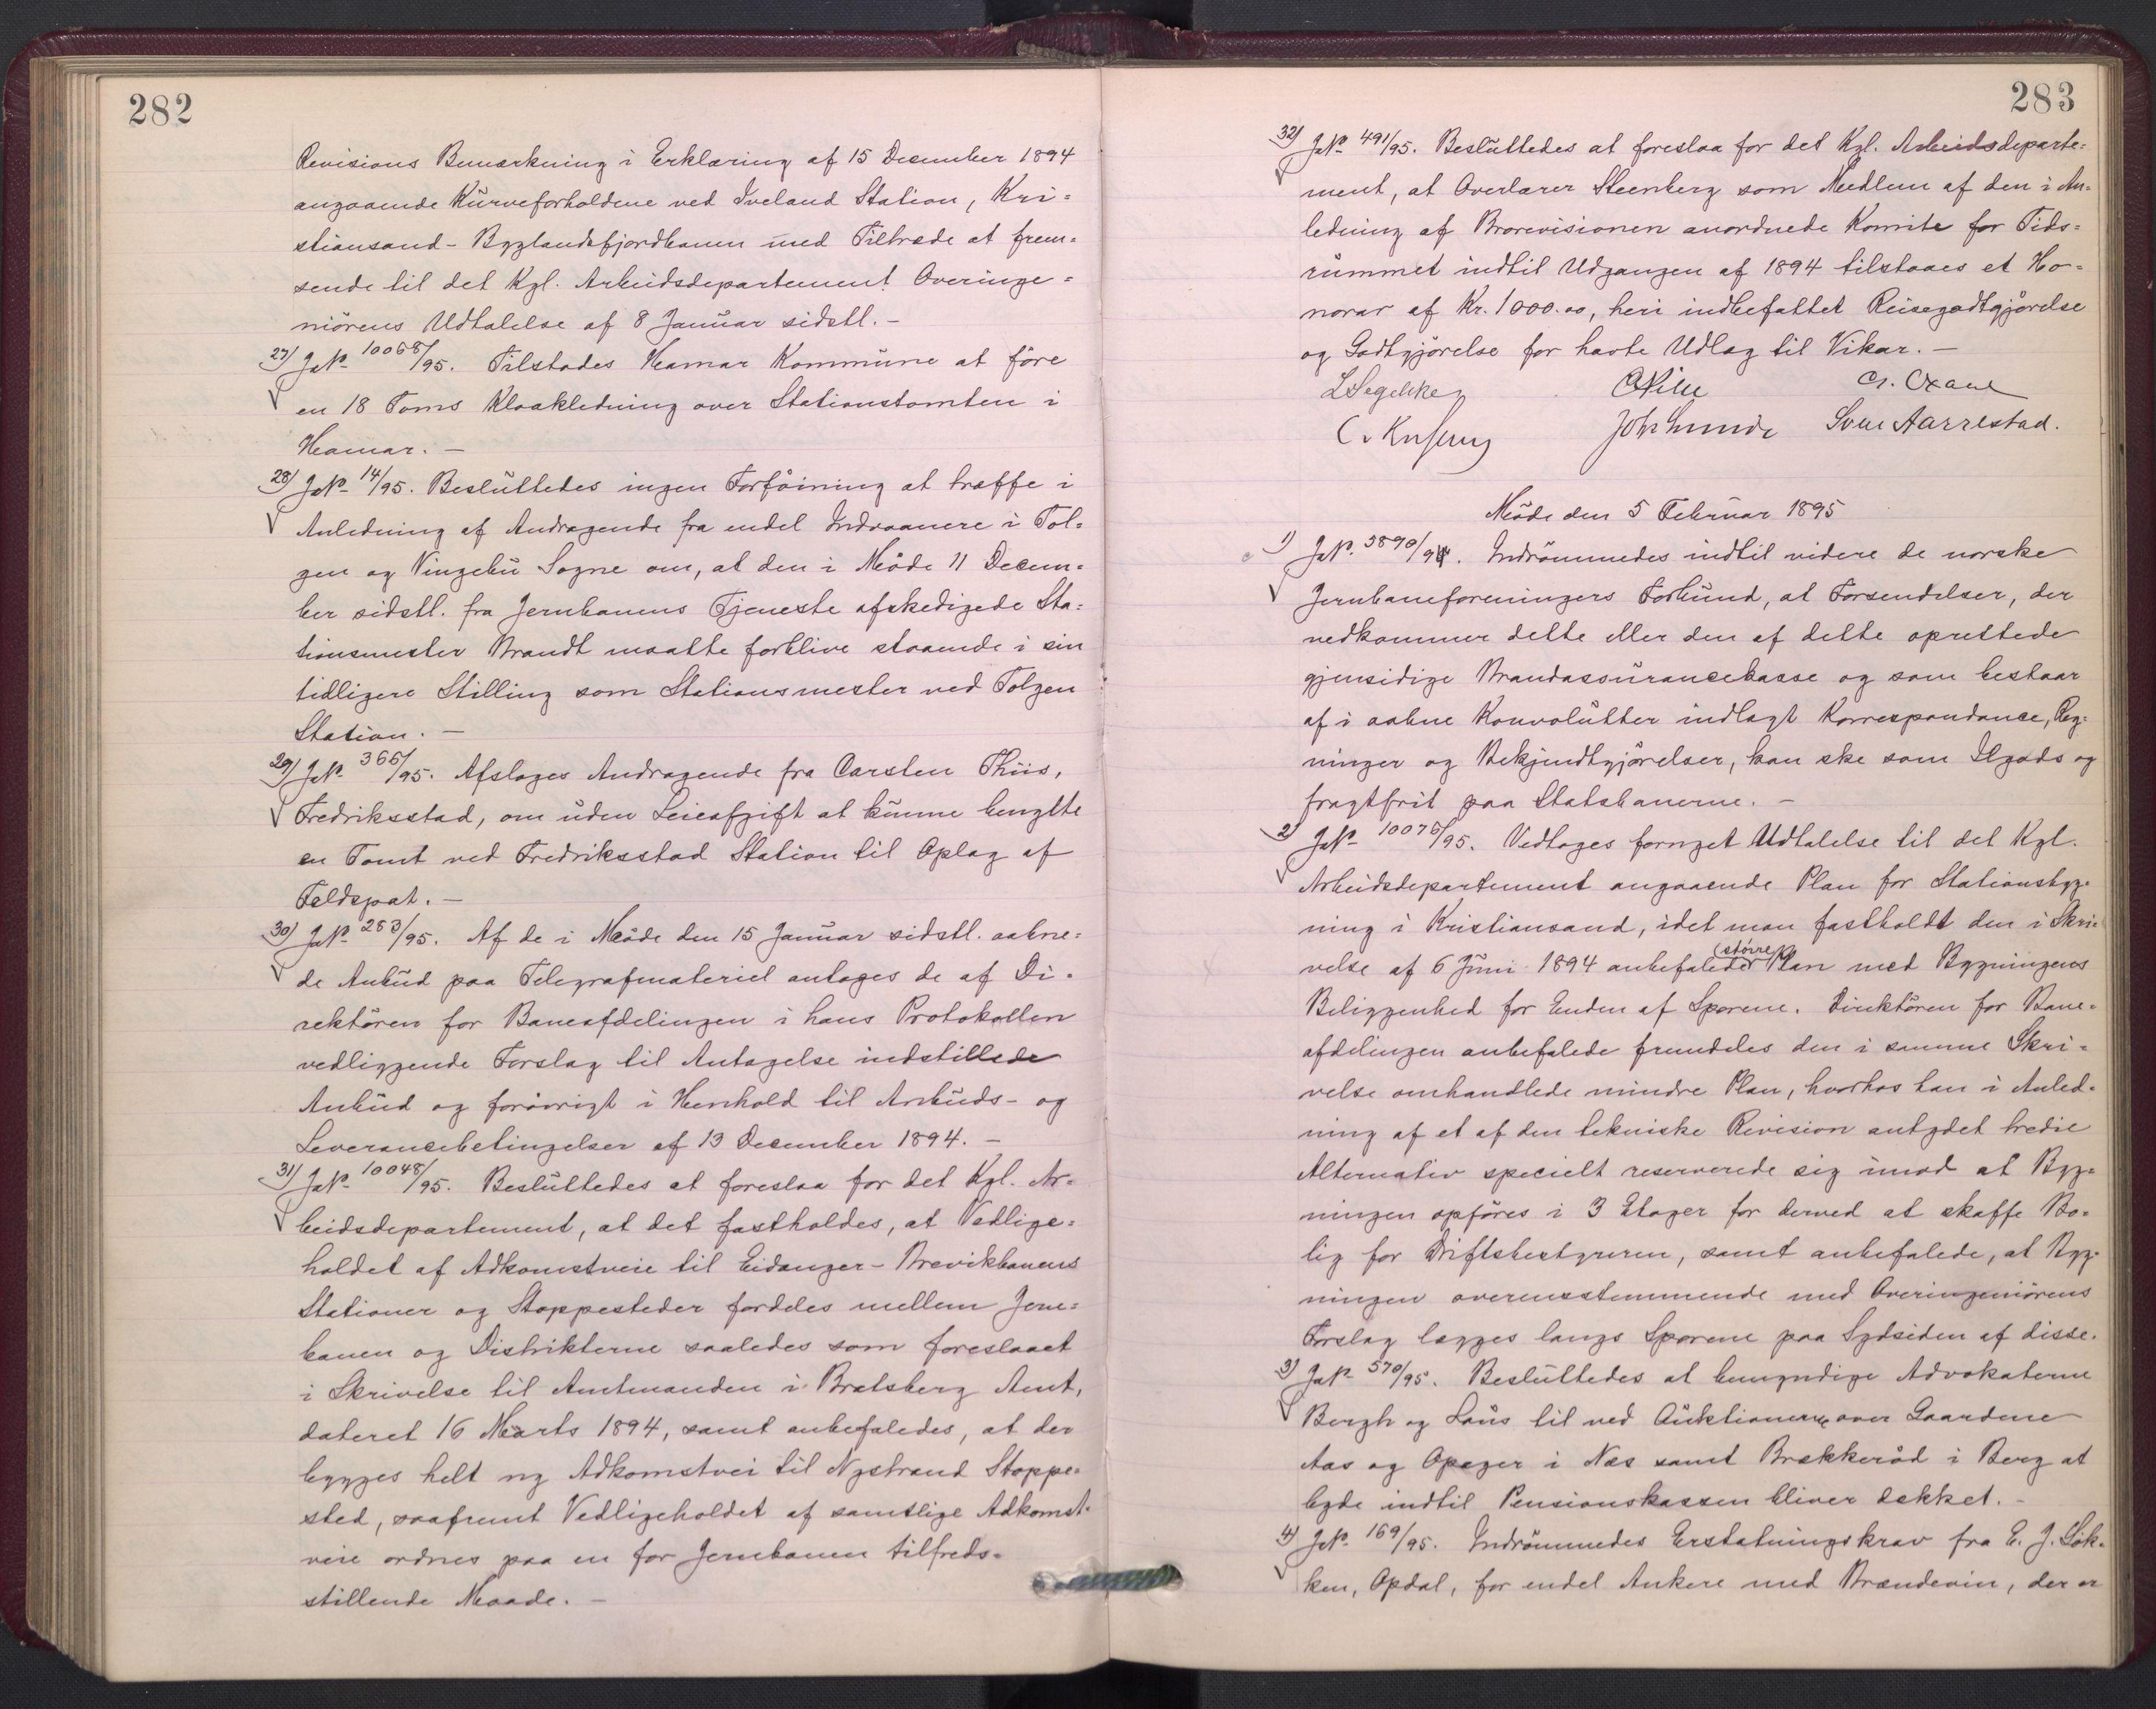 282
Revisions Bemærkning i Erklæring af 15 December 1894
angaaende Kurveforholdene ved Iveland Station, Kri=
stiansand-Byglandsfjordbanen med Tiltræde at frem=
sende til det Kgl. Arbeidsdepartement Overinge=
niörens Udtalelse af 8 Januar sidstl. –
27) JNº 10068/95. Tilstodes Hamar Kommune at före
en 18 Toms Kloakledning over Stationstomten i
Hamar. –
28) JNº 14/95. Besluttedes ingen Forföining at træffe i
Anledning af Andragende fra endel Indvaanere i Tol=
gen og Vingelen Sogne om, at den i Möde 11 Decem=
ber sidstl. fra Jernbanens Tjeneste afskedigede Sta=
tionsmester Brandt maatte forblive staaende i sin
tidligere Stilling som Stationsmester ved Tolgen
Station. –
29) JNº 365/95. Afsloges Andragende fra Carsten Thiis,
Fredriksstad, om uden Leieafgift at kunne benytte
en Tomt ved Fredriksstad Station til Oplag af
Feldspat. –
30) JNº 283/95. Af de i Möde den 15 Januar sidstl. aabne=
de Anbud paa Telegrafmateriel antages de af Di=
rektören for Baneafdelingen i hans Protokollen
vedliggende Forslag til Antagelse indstillede
Anbud og forövrigt i Henhold til Anbuds- og
Leverancebetingelser af 13 December 1894. –
31) JNº 10048/95. Besluttedes at foreslaa for det Kgl. Ar=
beidsdepartement, at det fastholdes, at Vedlige=
holdet af Adkomstveie til Eidanger-Brevikbanens
Stationer og Stoppesteder fordeles mellem Jern=
banen og Distrikterne saaledes som foreslaaet
i Skrivelse til Amtmanden i Bratsberg Amt,
dateret 16 Marts 1894, samt anbefaledes, at der
bygges helt ny Adkomstvei til Nystrand Stoppe=
sted, saafremt Vedligeholdet af samtlige Adkomst=
veie ordnes paa en for Jernbanen tilfreds=
stillende Maade. –
283
32) JNº 491/95. Besluttedes at foreslaa for det Kgl. Arbeidsdeparte=
ment, at Overlærer Steenberg som Medlem af den i An=
ledning af Brorevisionen anordnede Komite for Tids=
rummet indtil Udgangen af 1894 tilstaaes et Ho=
norar af Kr. 1000.00, heri indbefattet Reisegodtgjörelse
og Godtgjörelse for havte Udlæg til Vikar. –
LSegelcke CPihl
Joh Sunde Sven Aarrestad.
Möde den 5 Februar 1895
1) JNº 5890/94. Indrömmedes indtil videre de norske
Jernbaneforeningers Forbund, at Forsendelser, der
vedkommer dette eller den af dette oprettede
gjensidige Brandassurancekasse og som bestaar
af i aabne Konvolutter indlagt Korrespondance, Reg=
ninger og Bekjendtgjörelser, kan ske som Ilgods og
fragtfrit paa Statsbanerne. –
2) JNº 10075/95. Vedtoges fornyet Udtalelse til det Kgl.
Arbeidsdepartement angaaende Plan for Stationsbyg=
ning i Kristiansand, idet man fastholdt den i Skri=
velse af 6 Juni 1894 anbefalede (större) Plan med Bygningens
Beliggenhed for Enden af Sporene. Direktören for Bane=
afdelingen anbefalede fremdeles den i samme Skri=
velse omhandlede mindre Plan, hvorhos han i Anled=
ning af et af den tekniske Revision antydet tredie
Alternativ specielt reserverede sig imod at Byg=
ningen opföres i 3 Etager for derved at skaffe Bo=
lig for Driftsbestyreren, samt anbefalede, at Byg=
ningen overensstemmende med Overingeniörens
Forslag lægges langs Sporene paa Sydsiden af disse.
3) JNº 570/95. Besluttedes at bemyndige Advokaterne
Bergh og Laus til ved Auktionerne over Gaardene
Aas og Opager i Næs samt Brækkeröd i Berg at
byde indtil Pensionskassen bliver dækket. –
4) JNº 169/95. Indrömmedes Erstatningskrav fra E. J. Lök=
ken, Opdal, for endel Ankere med Brændevin, der er